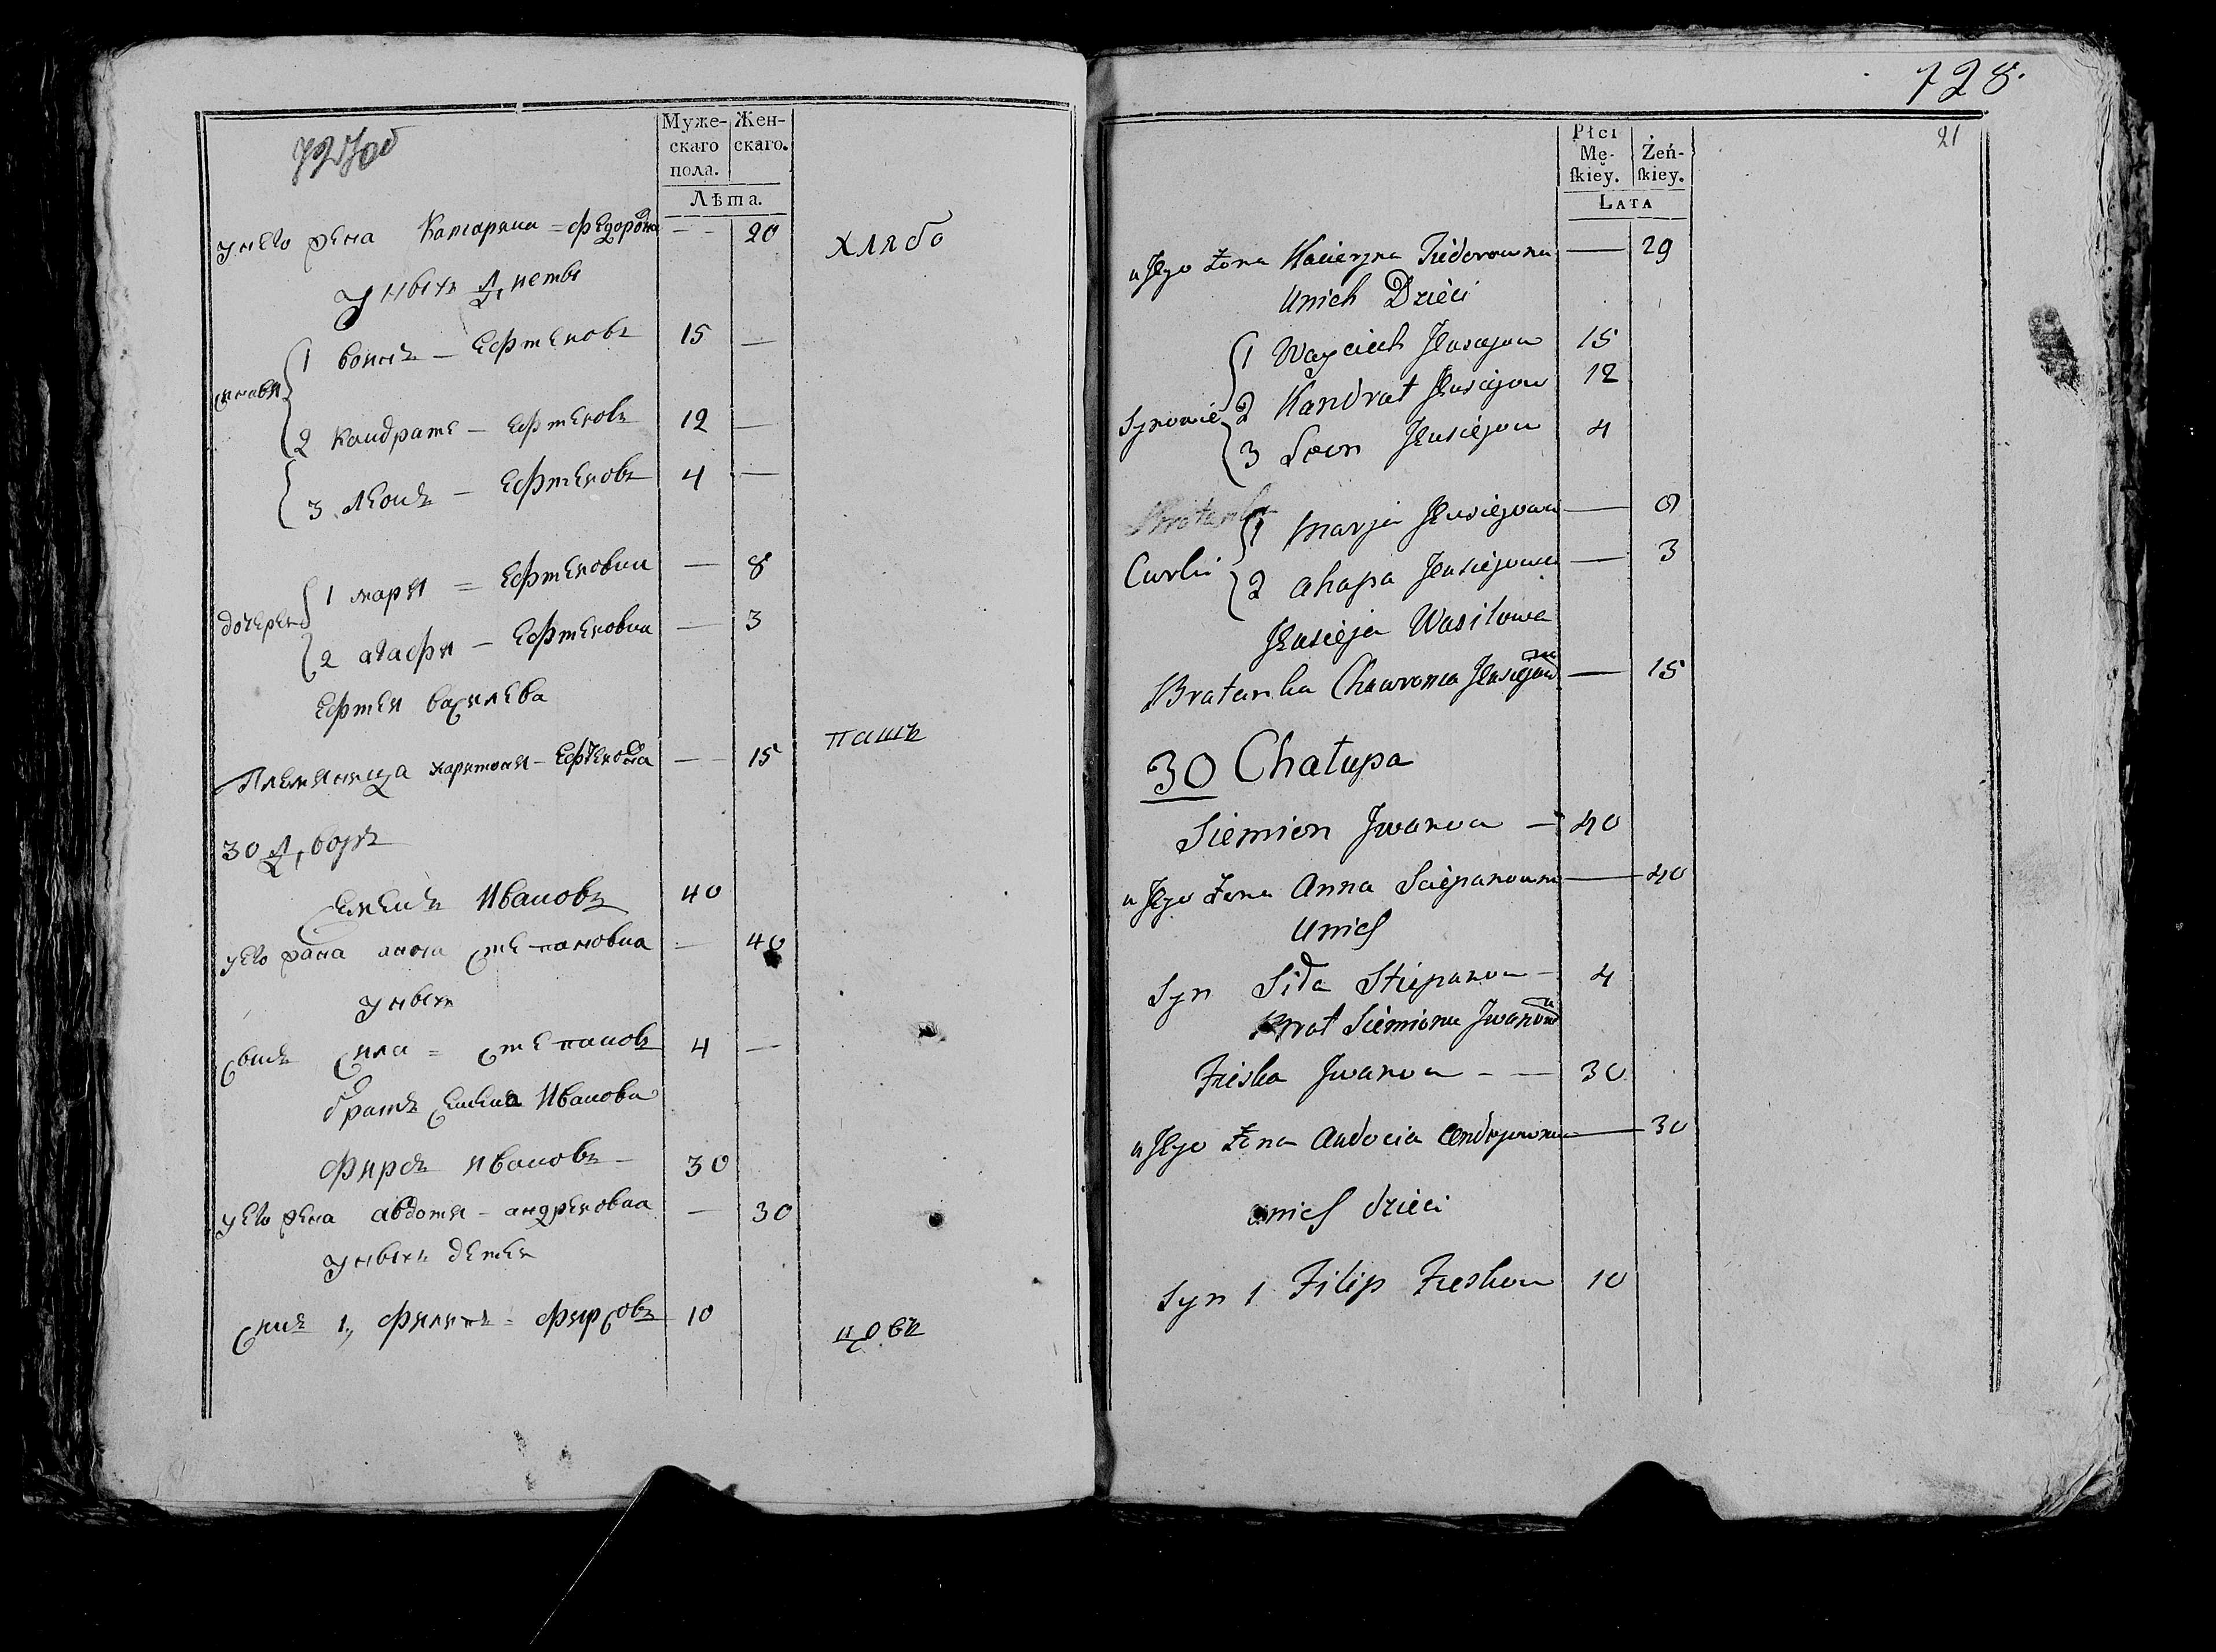 727об
Муже-
скаго
пола.
Жен-
скаго.
Лѣта.
унего жена Катаряна = федоровна — 20
хлябо
унихъ Дѣти
сновя
1 воинъ — Ефтеновъ 15 —
2 Кондрате — Ефтеновъ 12 —
3 леонъ — Ефтеновъ 4 —
дочерен
1 маря = Ефтеновна — 8
2 агафя — Ефтеновна — 3
Ефтея василева
Племяница харитоня — Ефтеновна — 15
пашъ
30 Дворъ
Семенъ Ивановъ 40
уего жана анна степановна — 40
унихъ
сынъ сила = степановъ 4 —
братъ Семена Иванова
фирсъ ивановъ — 30
уего жена авдотя — андреновна — 30
унихъ детен
синъ 1, филипъ = фирсовъ 10
цовъ
728.
21
Płci
Mę-
ſkiey.
Żeń-
ſkiey.
Lata
u Jego Żona Kacieryna Fiidorowna — 29
Unich Dzieci
Synowie
1 Wayciech Jeusiejow 15
2 Kandrat Jeusiejow 12
3 Lawon Jeusiejow 4
Bratanka
Curki
1 Marja Jeusiejowa — 8
2 ahapa Jeusiejowa — 3
Jeusieja Wasilowa
Bratanka Chawronia Jeusiejowna — 15
30 Chałupa
Siemion Jwanow — 40
u Jego Żona Anna Sciepanowna — 40
Unich
Syn Siła Stiepanow — 4
Brat Siemiona Jwanowa
Fieska Jwanow — — 30
u Jego Żona Audocia Andrejowna — 30
unich dzieci
Syn 1 Filip Fieskow 10